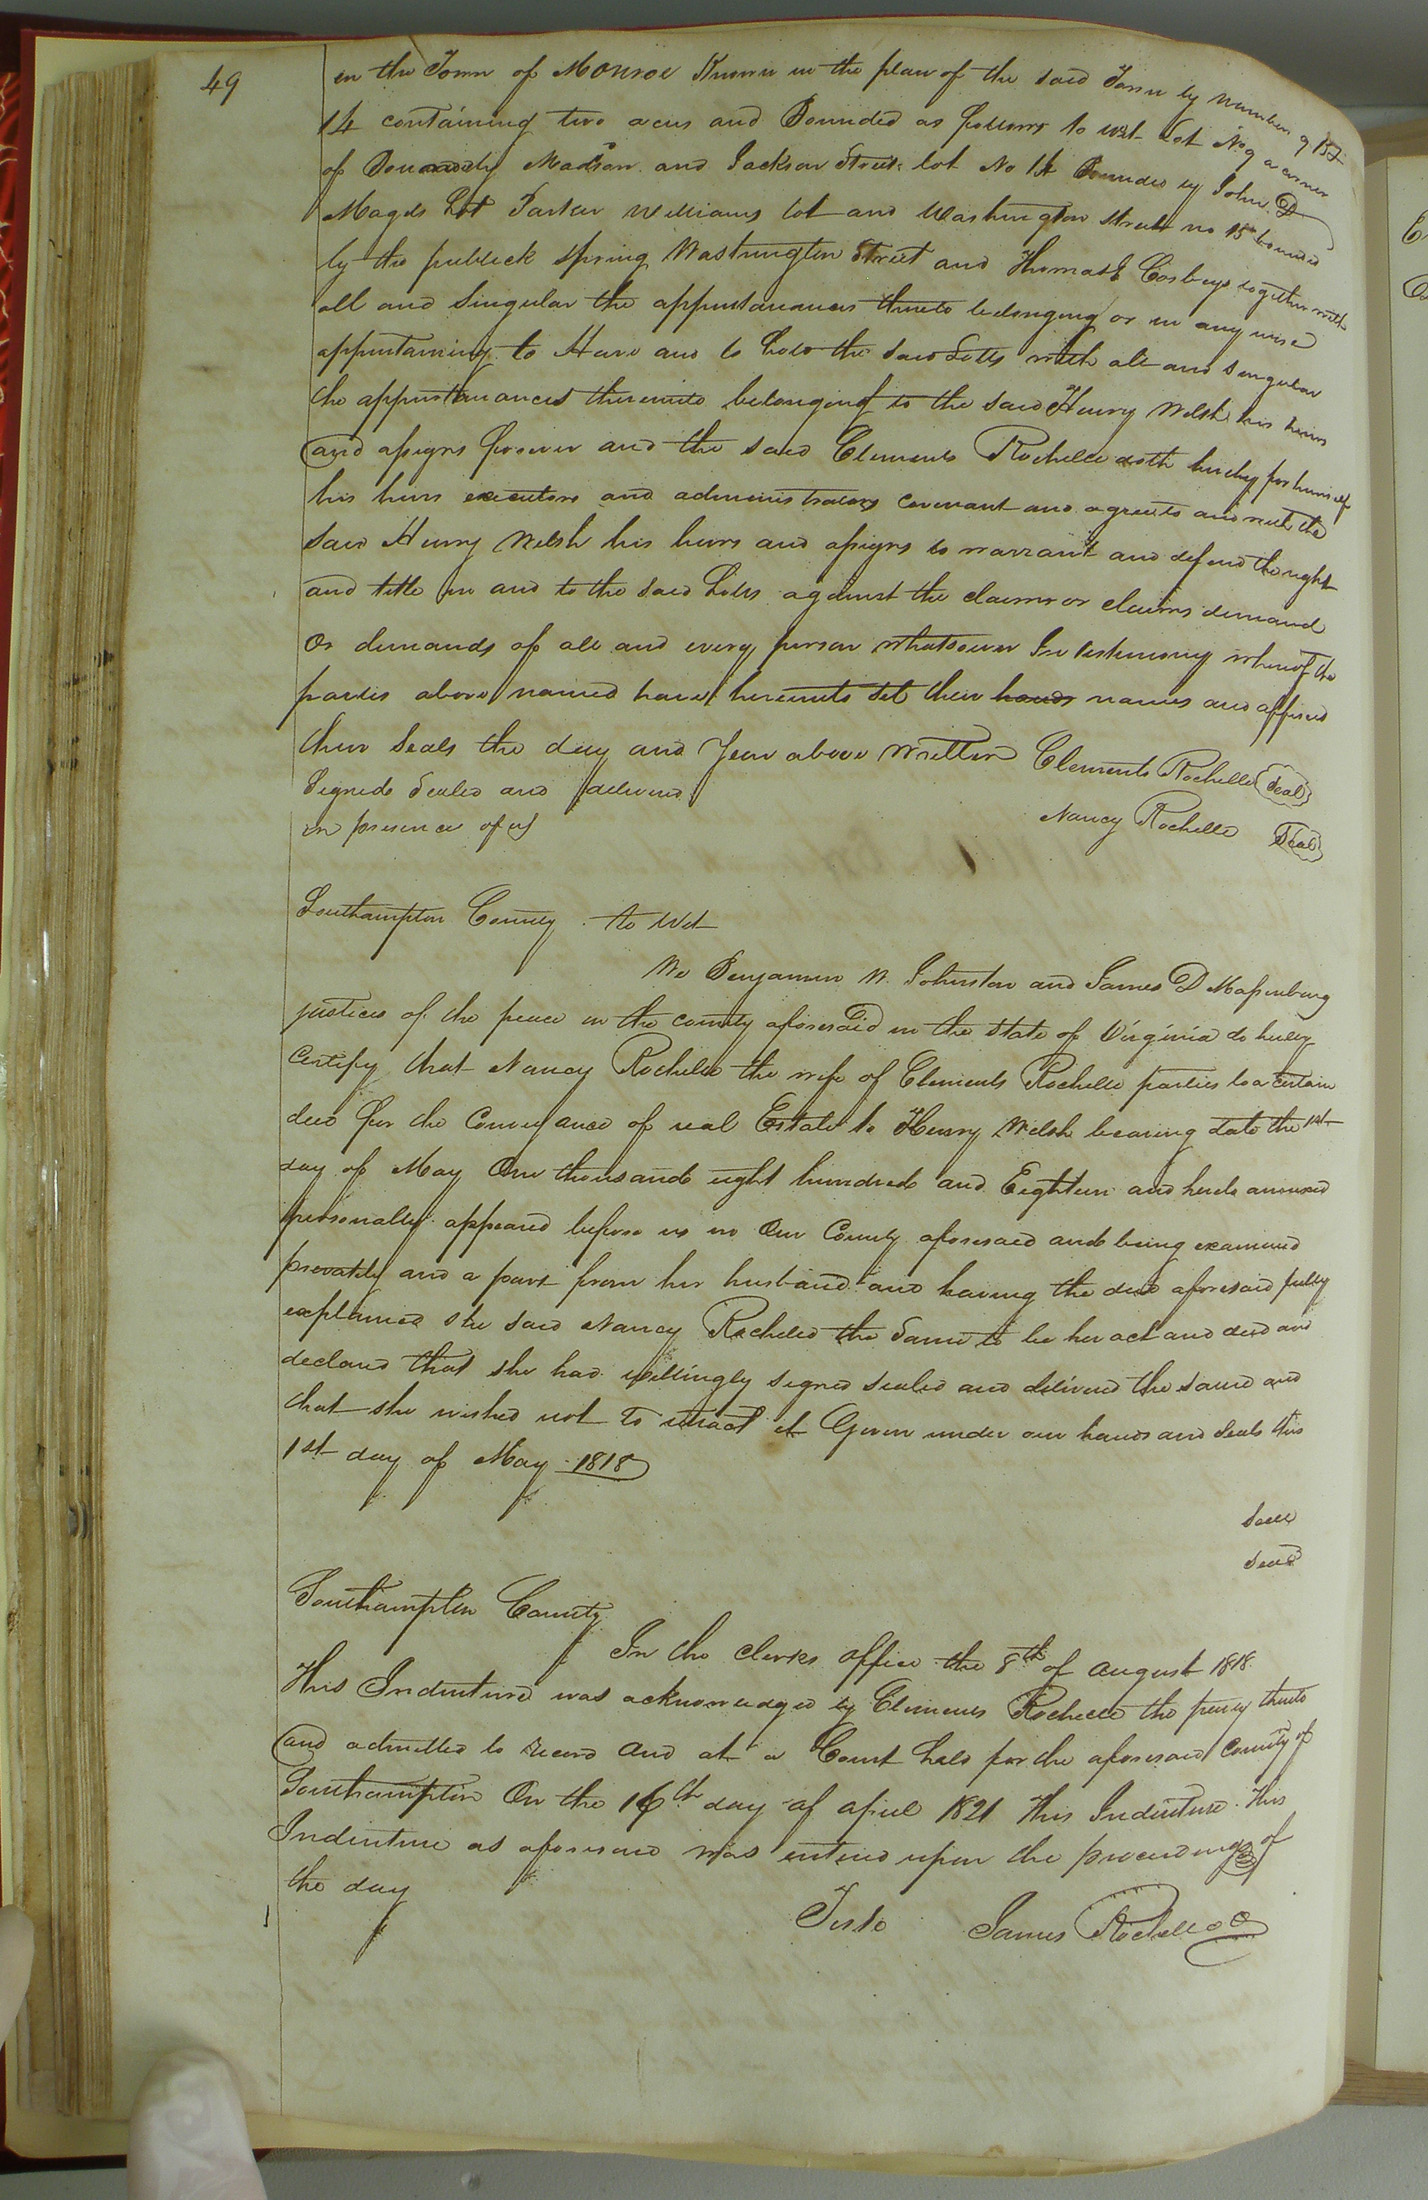 49
in the Town of Monroe Known in the plan of the said Town by numbers 9 15 &
14 containing two acres and Bounded as follows to wit Lot No 9 a corner
of Boundedby Madison and Jackson Street lot No 14 Bounded by John D
Magets Lot Parker Williams lot and Washington Street no 15 bounded
by the publick spring Washington Street and Thomas E Cosbys together with
all and Singular the appurtanances thereto belonging or in any wise
appurtaining to Have and to hold the said Lotts with all and singular
the appurtanances thereunto belonging to the said Henry Welsh his heirs
and assigns forever and the said Clements Rochelle doth hereby for himself
his heirs executors and administrators covenant and agree to and with the
said Henry Welsh his heirs and assigns to warrant and defend the right
and title in and to the said Lotts against the claims or claims demand
or demands of all and every person whatsoever In testimony whereof the
parties above named have hereunto set their hands names and affixed
their Seals the day and Year above written Clements Rochelle Seal
Signed Sealed and delivered
Nancy Rochelle Seal
in presence of us
Southampton County to Wit
We Benjamin W. Johnston and James D Massenburg
justices of the peace in the county aforesaid in the state of Virginia do hereby
Certify that Nancy Rochelle the wife of Clements Rochelle parties to a certain
deed for the Conveyance of real Estate to Henry Welsh bearing date the 1st
day of May One thousand eight hundred and Eighteen and hereto annexed
personally appeared before us in Our County aforesaid and being examined
privately and a part from her husband and having the deed aforesaid fully
explained she said Nancy Rochelle the Same to be her act and deed and
declared that she had willingly signed sealed and delivered the same and
that she wished not to retract it Given under our hands and Seals this
1st day of May 1818
Seal
Seal
Southampton County
In the clerks office the 8th of August 1818
This Indenture was acknowledged by Clements Rochelle the party thereto
and admitted to record And at a Court held for the aforesaid County of
Southampton On the 16th day of april 1821 This Indenture This
Indenture as aforesaid was entered upon the proceedings of
the day
Teste James Rochelle